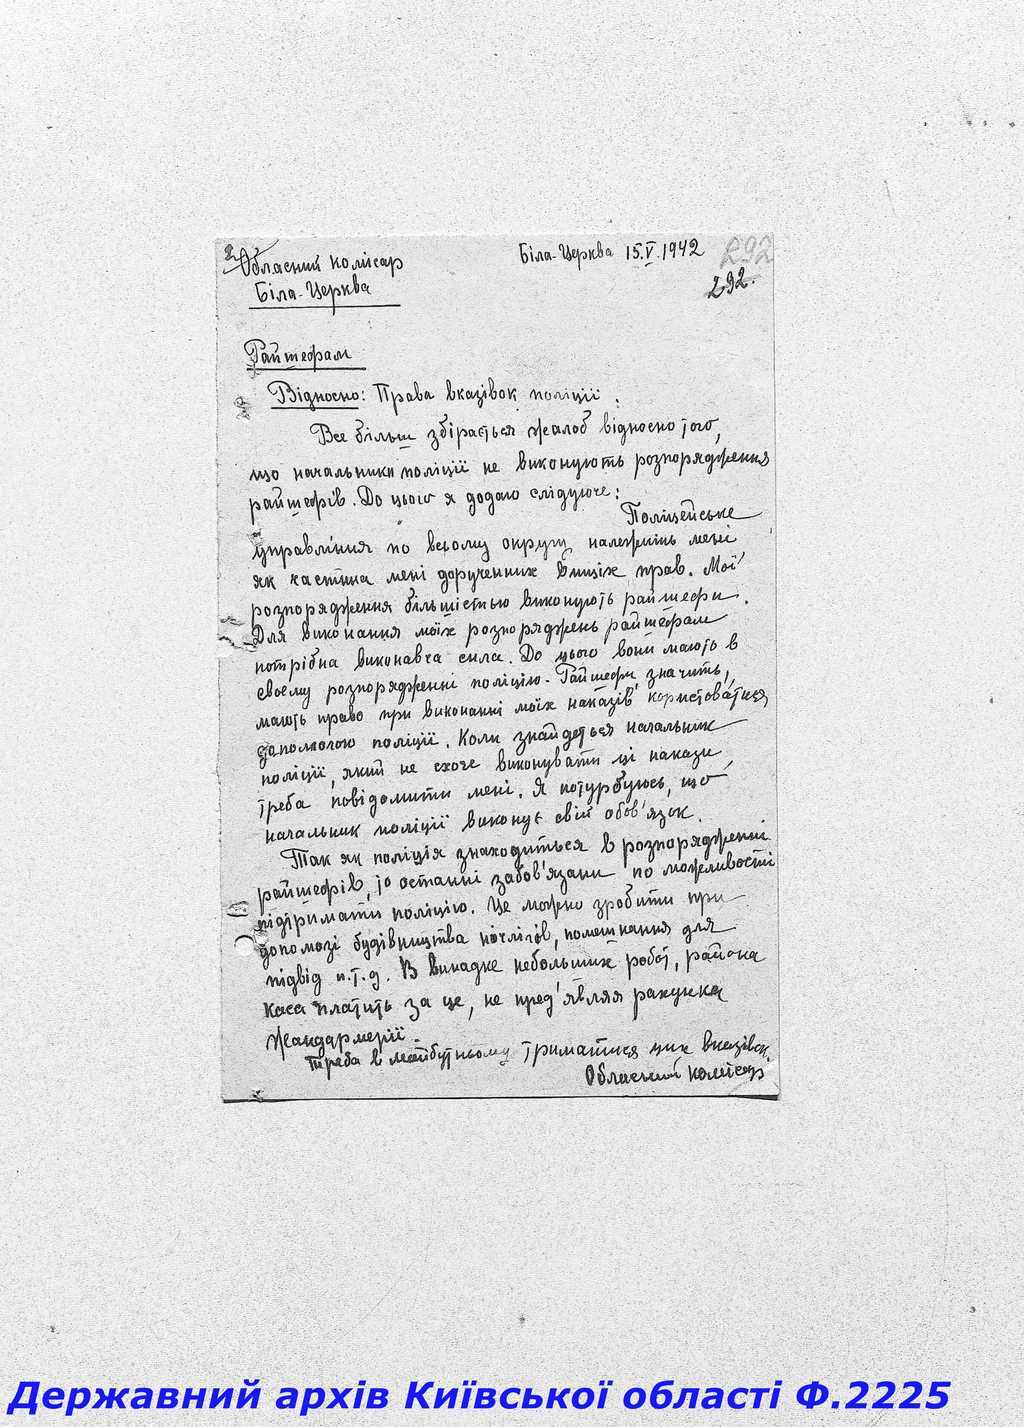 Обласний комісар
Біла-Церква
Біла-Церква 15.V.1942
292
292.
Райшефам
Відносно: Права вказівок поліції.
Все більш збірається жалоб відносно того,
що начальники поліції не виконують розпорядження
райшефів. До цього я додаю слідуюче:
Поліцейське
управління по всьому округу належить мені
як частина мені доручених вищих прав. Мої
розпорядження більшістью виконують райшефи.
Для виконання моїх розпоряджень райшефам
потрібна виконавча сила. До цього вони мають в
своєму розпорядженні поліцію. Райшефи, значить,
мають право при виконанні моїх наказів користоватися
допомогою поліції. Коли знайдеться начальник
поліції, який не схоче виконувати ці накази,
треба повідомити мені. Я потурбуюсь, що
начальник поліції виконує свій обов'язок.
Так як поліція знаходиться в розпорядженні
райшефів, то останні забов'язани по можливості
підтримати поліцію. Це можно зробити при
допомозі будівництва ночлігов, помешкання для
підвід и.т.д. В випадке небольших робот, района
касса платить за це, не пред'являя рахунка
жандармерії.
Треба в майбутньому триматися цих вказівок.
Обласний комісар
Державний архів Київської області Ф.2225